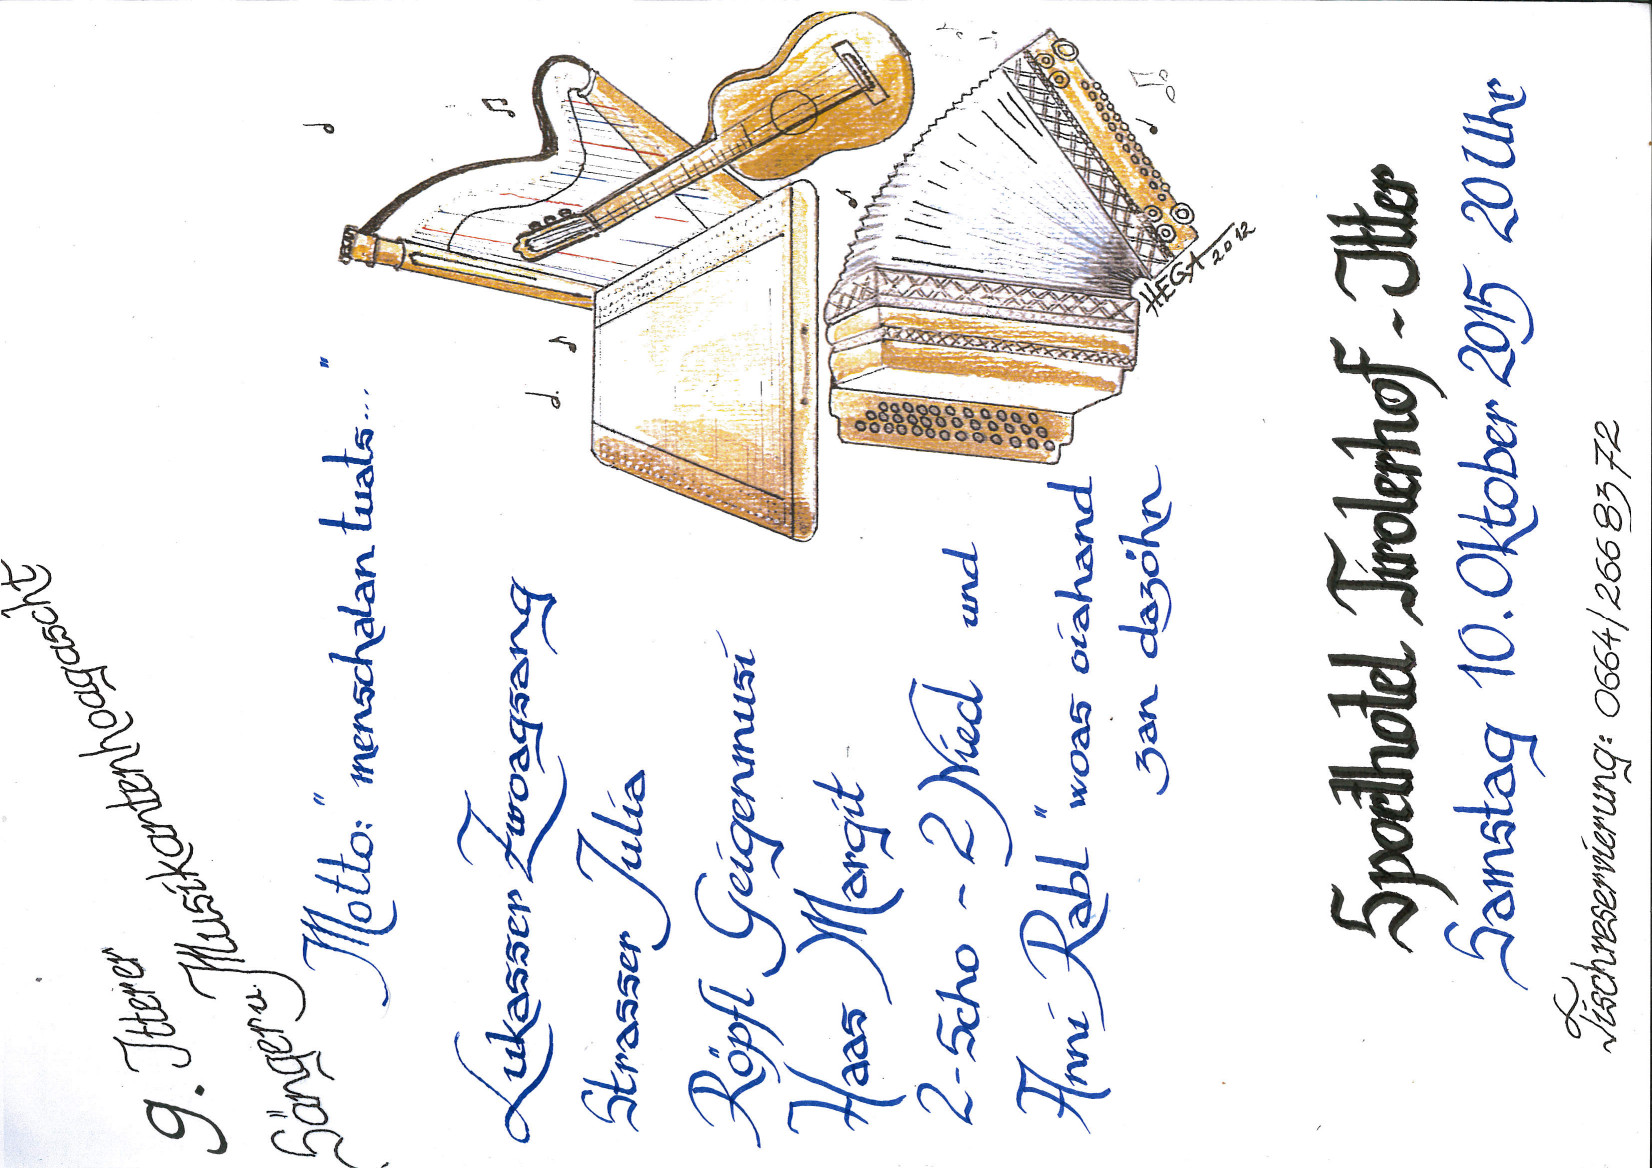 9. Itterer
Sänger u. Musikantenhoagascht
Motto: "menschalan tuats..."
Lukasser Zwoagsang
Strasser Julia
Röpfl Geigenmusi
Haas Margit
2-Scho - 2 Nied und
Anni Rabl "woas oiahand
zan dazöhn
HEGA 2012
Sporthotel Tirolerhof - Itter
Samstag 10. Oktober 2015 20 Uhr
Tischreservierung: 0664/266 83 72